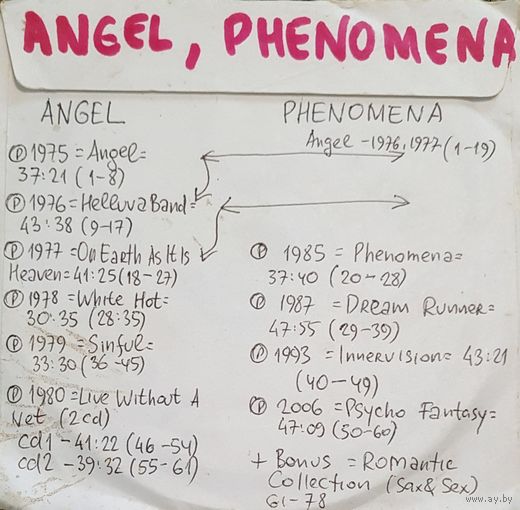 ANGEL, PHENOMENA
ANGEL
℗ 1975 = Angel=
37:21 (1-8)
℗ 1976 = Helluva Band=
43:38 (9-17)
℗ 1977 = On Earth As It Is
Heaven=41:25 (18-27)
℗ 1978 = White Hot=
30:35 (28:35)
℗ 1979 = Sinful=
33:30 (36-45)
℗ 1980 = Live Without A
Net (2cd)
cd1 - 41:22 (46-54)
cd2 - 39:32 (55-61)
PHENOMENA
Angel - 1976, 1977 (1-19)
℗ 1985 = Phenomena=
37:40 (20-28)
℗ 1987 = Dream Runner=
47:55 (29-39)
℗ 1993 = Innervision= 43:21
(40-49)
℗ 2006 = Psycho Fantasy=
47:09 (50-60)
+ Bonus = Romantic
Collection (Sax & Sex)
61-78
www.ay.by